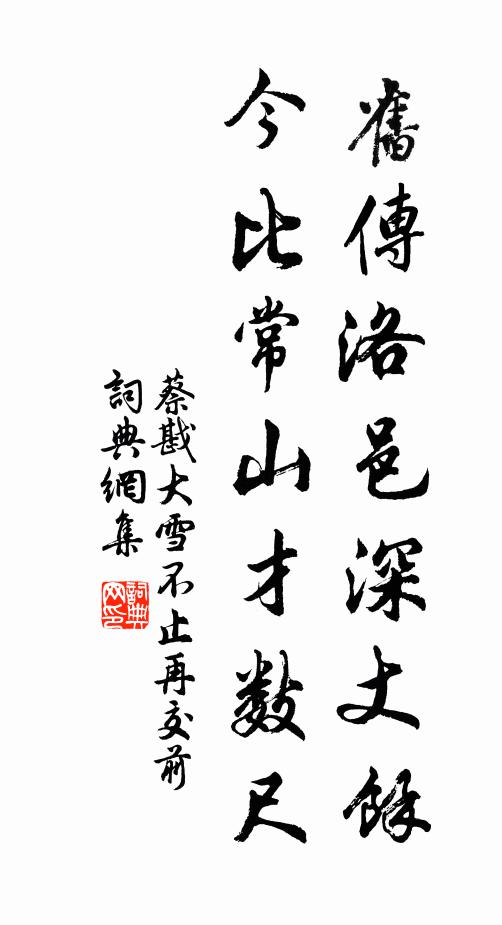 舊傳洛邑深丈餘
今比常山才數尺
蔡戡大雪不止再交前
詞典網集
詞典
网印